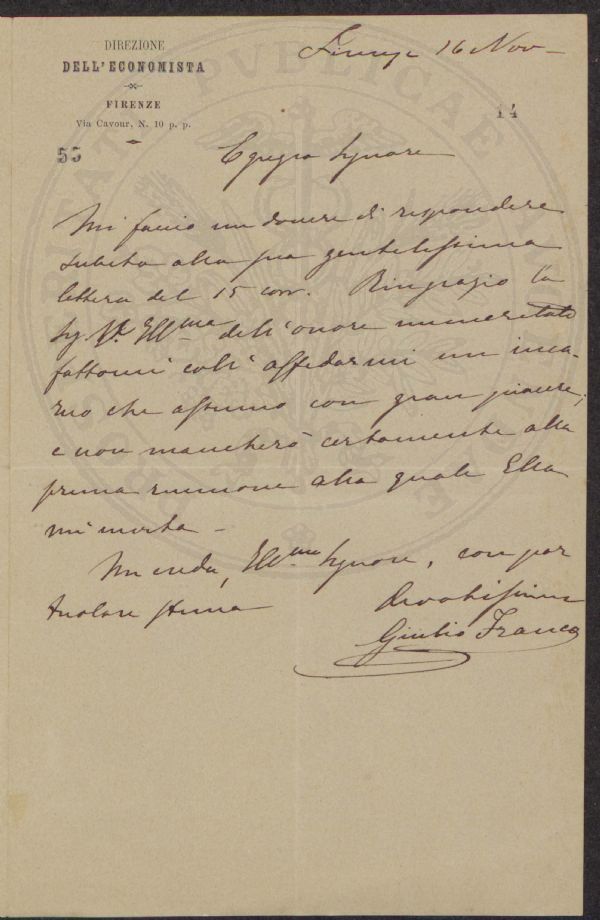 DIREZIONE
DELL'ECONOMISTA
FIRENZE
Via Cavour, N. 10 p. p.
Firenze 16 Nov
14
55
Egregio Signore
Mi faccio un dovere di rispondere
subito alla sua gentilissima
lettera del 15 corr. Ringrazio la
Sg. Vª Illma dell'onore immeritato
fattomi coll'affidarmi un inca-
rico che assumo con gran piacere,
e non mancherò certamente alla
prima riunione alla quale Ella
mi invita –
Mi creda, Illmo Signore, con par
ticolare stima
Devotissimo
Giulio Franco